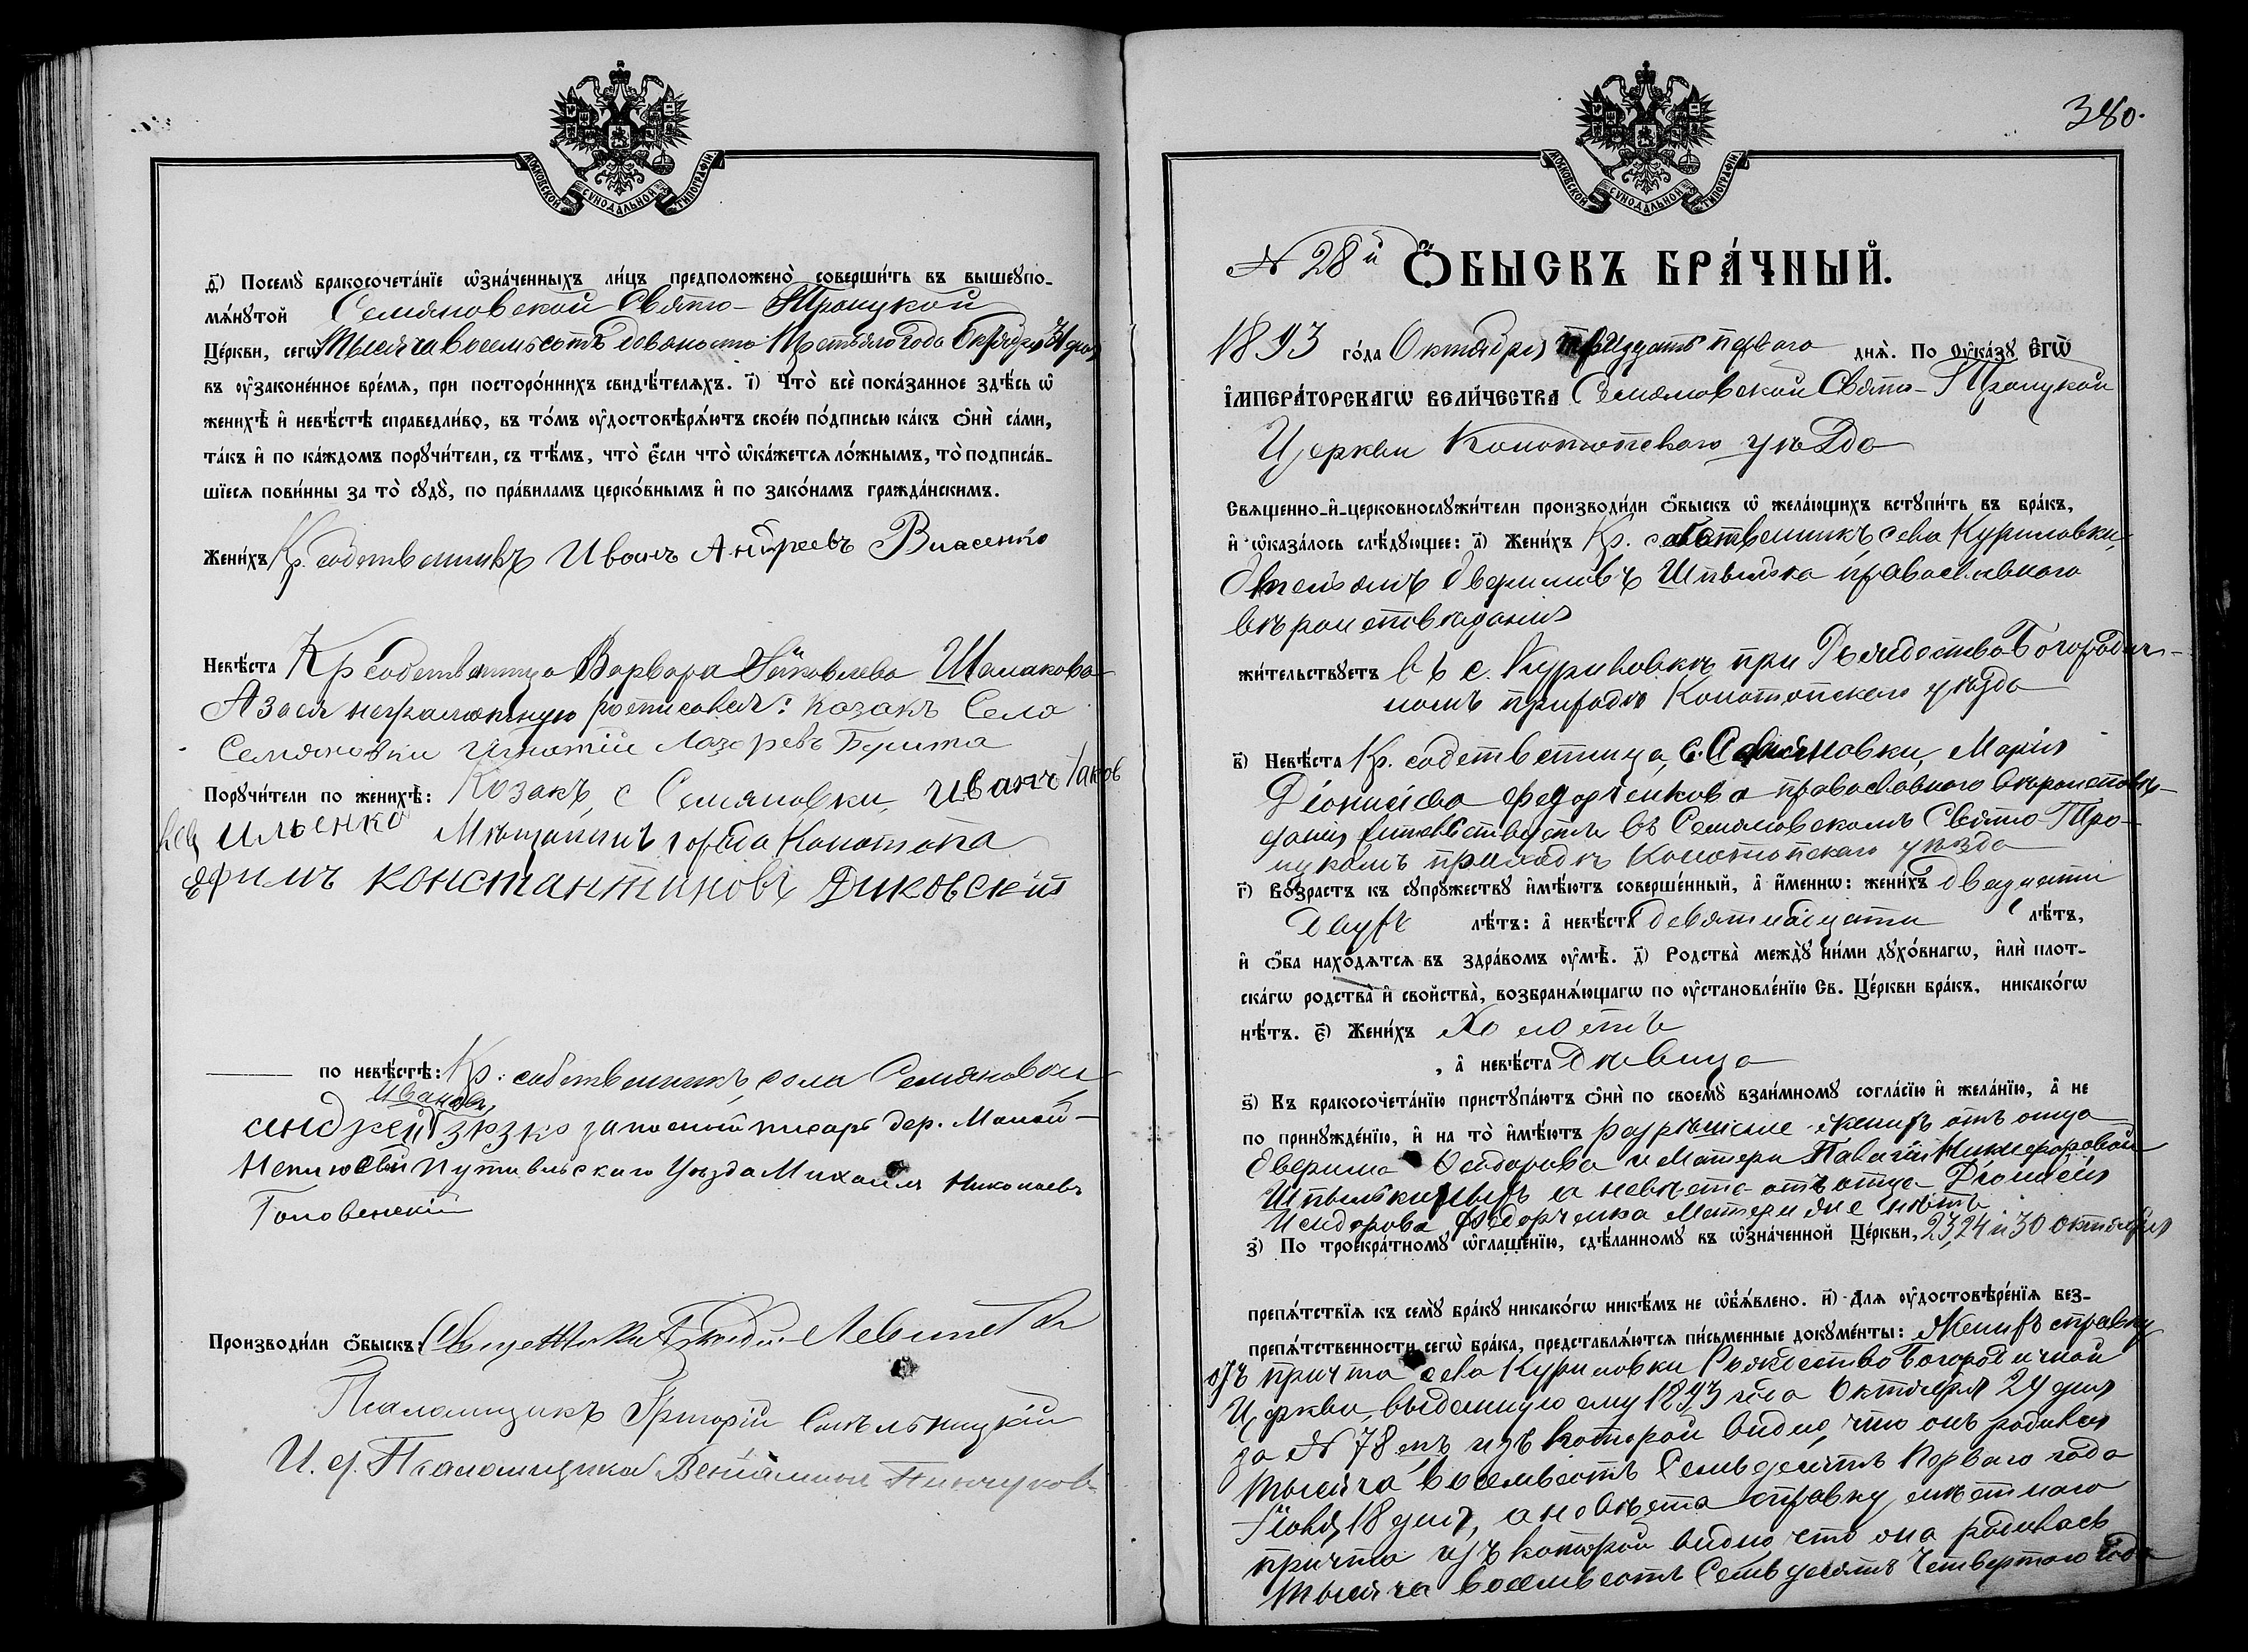 МОСКОВСКОЙ СѴНОДАЛЬНОЙ ТИПОГРАФІИ
д҃) Посемꙋ̀ бракосочета́нїе ѡ҆зна́ченныхъ ли́цъ предположено̀ соверши́ть въ вышеꙋпо-
мѧ́нꙋтой Семяновской Свято-Троицкой
Це́ркви, сегѡ̀ Тысяча восемьсотъ девяносто Третьяго года Октября 31 дня
въ ᲂу҆законе́нное вре́мѧ, при посторо́ннихъ свидѣ́телѧхъ. і҃) Что̀ всѐ пока́занное здѣ́сь ѡ҆
женихѣ̀ и҆ невѣ́стѣ справедли́во, въ то́мъ ᲂу҆достовѣрѧ́ютъ свое́ю по́дписью ка́къ ѻ҆нѝ са́ми,
та́къ и҆ по ка́ждомъ порꙋчи́тели, съ тѣ́мъ, что̀ є҆́сли что̀ ѡ҆ка́жетсѧ ло́жнымъ, то̀ подписа́в-
шїесѧ пови́нны за то̀ сꙋдꙋ̀, по пра́виламъ церко́внымъ и҆ по зако́намъ гражда́нскимъ.
Жени́хъ Кр. собственникъ Иванъ Андреевъ Власенко
Невѣ́ста Кр собственница Варвара Яковлева Шамакова
А за ея неграмотную росписался: козакъ Села
Семяновки Игнатій Лазоревъ Бурита
Порꙋчи́тели по женихѣ̀: Козакъ, с Семяновки, Иванъ Яков
лев Ильенко Мѣщанинъ города Конотопа
Ефимъ Константиновъ Диковскій
по невѣ́стѣ: Кр. собственникъ, села Семяновки,
Ивановъ
Андрей Зюзко запасной писарь дер. Малой-
Неплюевки Путивльскаго Уѣзда Михаилъ Николаевъ
Головенскій
Производи́ли ѻ҆́быскъ: Священникъ Левитскій
Псаломщикъ Григорій Синельницкій
И. д. Псаломщика Веніаминъ
380.
МОСКОВСКОЙ СѴНОДАЛЬНОЙ ТИПОГРАФІИ
№ 28й Ѻ҆БЫСКЪ БРА́ЧНЫЙ.
1893 го́да Октября тридцать перваго днѧ̀. По ᲂу҆ка́зꙋ Є҆гѡ̀
І҆мпера́торскагѡ Вели́чества Семяновской Свято-Троицкой
Церкви Конотопскаго уѣзда
Свѧщенно-и҆-церковнослꙋжи́тели производи́ли ѻ҆́быскъ ѡ҆ жела́ющихъ встꙋпи́ть въ бра́къ,
и҆ ѡ҆каза́лось слѣ́дꙋющее: а҃) Жени́хъ Кр. собственникъ села Куриловки,
Емельянъ Аверкіевъ Шпылька православнаго
вѣроисповѣданія
жи́тельствꙋетъ въ с. Куриловкѣ при Рождество Богородич-
номъ приходѣ Конотопскаго уѣзда
в҃) Невѣ́ста Кр. собственница, с. Семяновки, Марія
Діонисіева Федорченкова православнаго вѣроисповѣ-
данія жительствуетъ въ Семяновскомъ Свято-Тро-
ицкомъ приходѣ Конотопскаго уѣзда
г҃) Во́зрастъ къ сꙋпрꙋ́жествꙋ и҆мѣ́ютъ соверше́нный, а҆ и҆́меннѡ: жени́хъ двадцати
двухъ лѣ́тъ: а҆ невѣ́ста девятнадцати лѣ́тъ,
и҆ ѻ҆́ба нахо́дѧтсѧ въ здра́вомъ ᲂу҆мѣ̀. д҃) Родства̀ междꙋ̀ ни́ми дꙋхо́внагѡ, и҆лѝ плот-
ска́гѡ родства̀ и҆ свойства̀, возбранѧ́ющагѡ по ᲂу҆становле́нїю Св. Це́ркви бра́къ, никако́гѡ
нѣ́тъ. є҃) Жени́хъ Холостъ
, а҆ невѣ́ста Дѣвица
ѕ҃) Къ бракосочета́нїю пристꙋпа́ютъ ѻ҆нѝ по своемꙋ̀ взаи́мномꙋ согла́сїю и҆ жела́нїю, а҆ не
по принꙋжде́нїю, и҆ на то̀ и҆мѣ́ютъ разрѣшеніе женихъ отъ отца
Аверкія Феодорова и матери Никифоровой
Шпылькиныхъ а невѣста отъ отца Діонисія
Исидорова Федорченка матери же нѣтъ
з҃) По троекра́тномꙋ ѡ҆глаше́нїю, сдѣ́ланномꙋ въ ѡ҆зна́ченной Це́ркви, 23, 24 и 30 октября
препѧ́тствїѧ къ семꙋ̀ бра́кꙋ никако́гѡ никѣ́мъ не ѡ҆б̾ѧ́влено. и҃) Для ᲂу҆достовѣре́нїѧ без-
препѧ́тственности сегѡ̀ бра́ка, представлѧ́ютсѧ пи́сьменные докꙋме́нты: Женихъ справку
отъ причта села Куриловки Рождество Богородичной
Церкви, выданную ему 1893 года Октября 24 дня
за № 78мъ изъ которой видно, что онъ родился
тысяча восемьсотъ Семьдесятъ Перваго года
Іюля, 18 дня, а невѣста справку мѣстнаго
причта изъ которой видно что она родилась
тысяча восемьсотъ Семьдесятъ Четвертаго Года